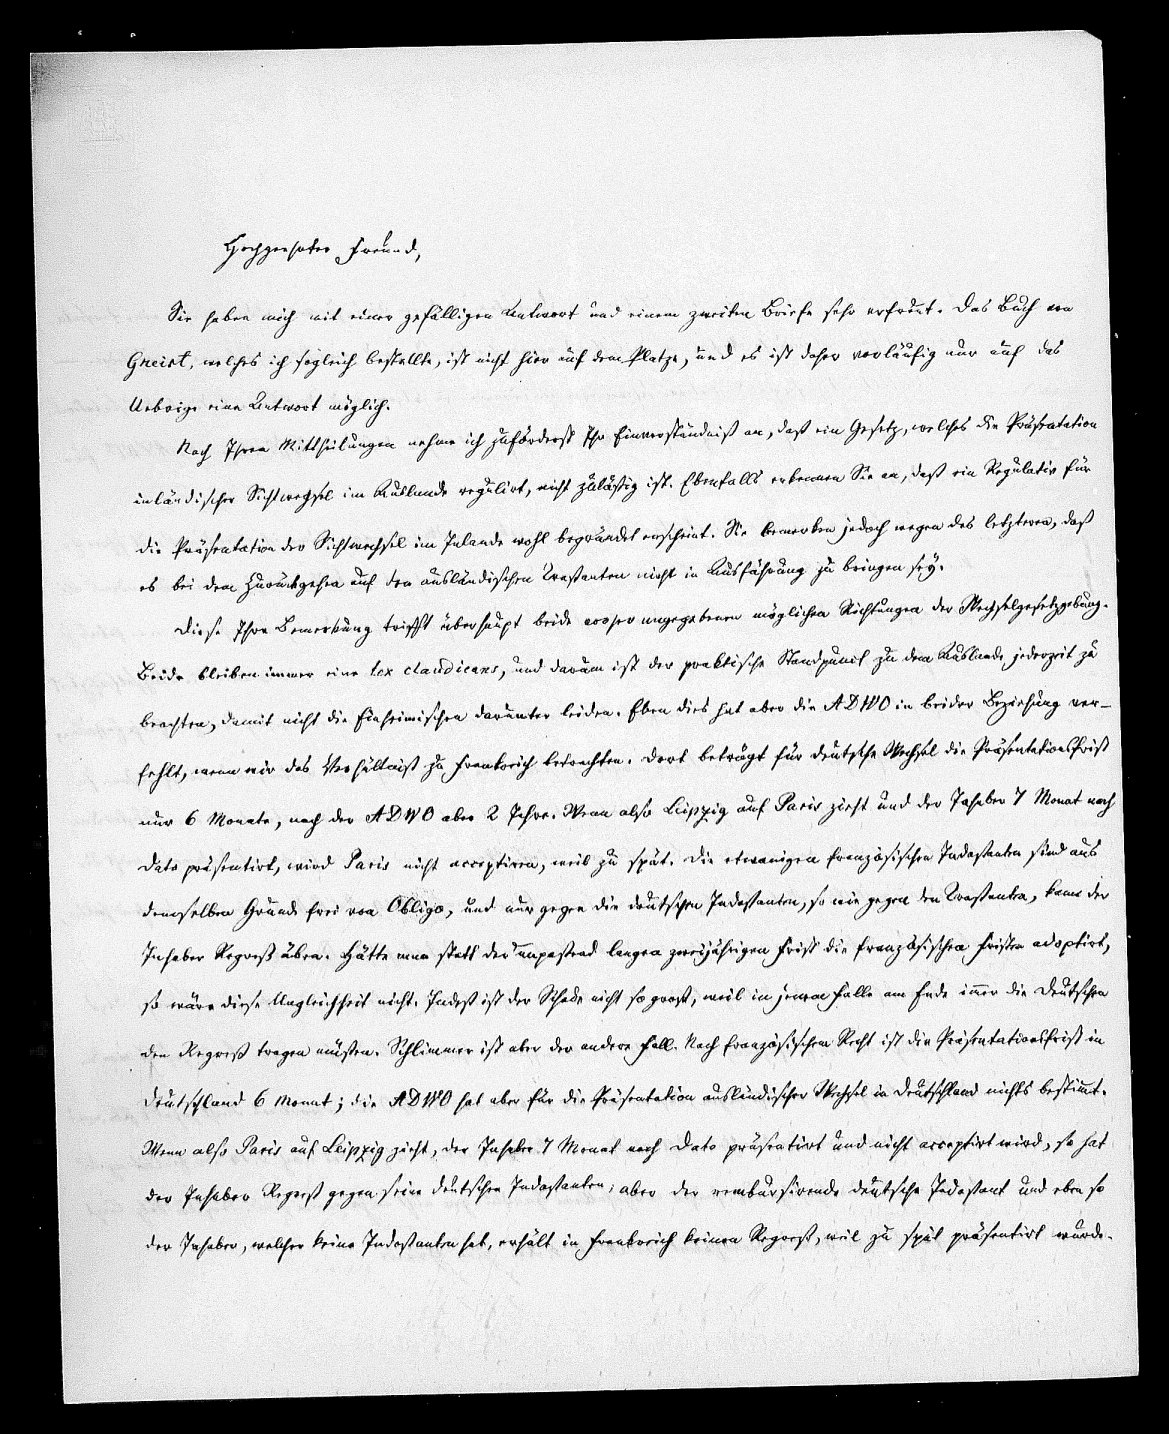 Hochgeehrter Freund,
Sie haben mich mit einer gefälligen Antwort und einem zweiten Briefe sehr erfreut. Das Buch von
Gneist, welches ich sogleich bestellte, ist nicht hier auf dem Platze, und es ist daher vorläufig nur auf das
Uebrige eine Antwort möglich.
Nach Ihren Mittheilungen nehme ich zuförderst Ihr Einverständniß an, daß ein Gesetz, welches die Präsentation
inländischer Sichtwechsel im Auslande regulirt, nicht zuläßig ist. Ebenfalls erkennen Sie an, daß ein Regulativ für
die Präsentation der Sichtwechsel im Inlande wohl begründet erscheint. Sie bemerken jedoch wegen des letzteren, daß
es bei dem Zurückgehen auf den ausländischen Trassanten nicht in Ausführung zu bringen sey.
Diese Ihre Bemerkung trifft überhaupt beide angegebenen möglichen Richtungen der Wechselgesetzgebung.
Beide bleiben immer eine lex claudicans, und darum ist der praktische Standpunct zu dem Auslande jederzeit zu
beachten, damit nicht die Einheimischen darunter leiden. Eben dies hat aber die ADWO in beider Beziehung ver-
fehlt, wenn wir das Verhältniß zu Frankreich betrachten. Dort beträgt für deutsche Wechsel die Präsentationsfrist
nur 6 Monate, nach der ADWO aber 2 Jahre. Wenn also Leipzig auf Paris zieht und der Inhaber 7 Monat nach
dato präsentirt, wird Paris nicht acceptiren, weil zu spät. Die etwanigen französischen Indossanten sind aus
demselben Grunde frei von Obligo, und nur gegen die deutschen Indossanten, so wie gegen den Trassanten, kann der
Inhaber Regreß üben. Hätte man statt der unpassend langen zweijährigen Frist die französischen Fristen adoptirt,
so wäre diese Ungleichheit nicht. Indeß ist der Schade nicht so groß, weil in jenem Falle am Ende immer die Deutschen
den Regreß tragen müßten. Schlimmer ist aber der andere Fall. Nach französischem Recht ist die Präsentationsfrist in
Deutschland 6 Monat; die ADWO hat aber für die Präsentation ausländischer Wechsel in Deutschland nichts bestimmt.
Wenn also Paris auf Leipzig zieht, der Inhaber 7 Monat nach dato präsentirt und nicht acceptirt wird, so hat
der Inhaber Regreß gegen seine deutschen Indossanten; aber der rembursirende deutsche Indossant und eben so
der Inhaber, welcher keine Indossanten hat, erhält in Frankreich keinen Regreß, weil zu spät präsentirt wurde.